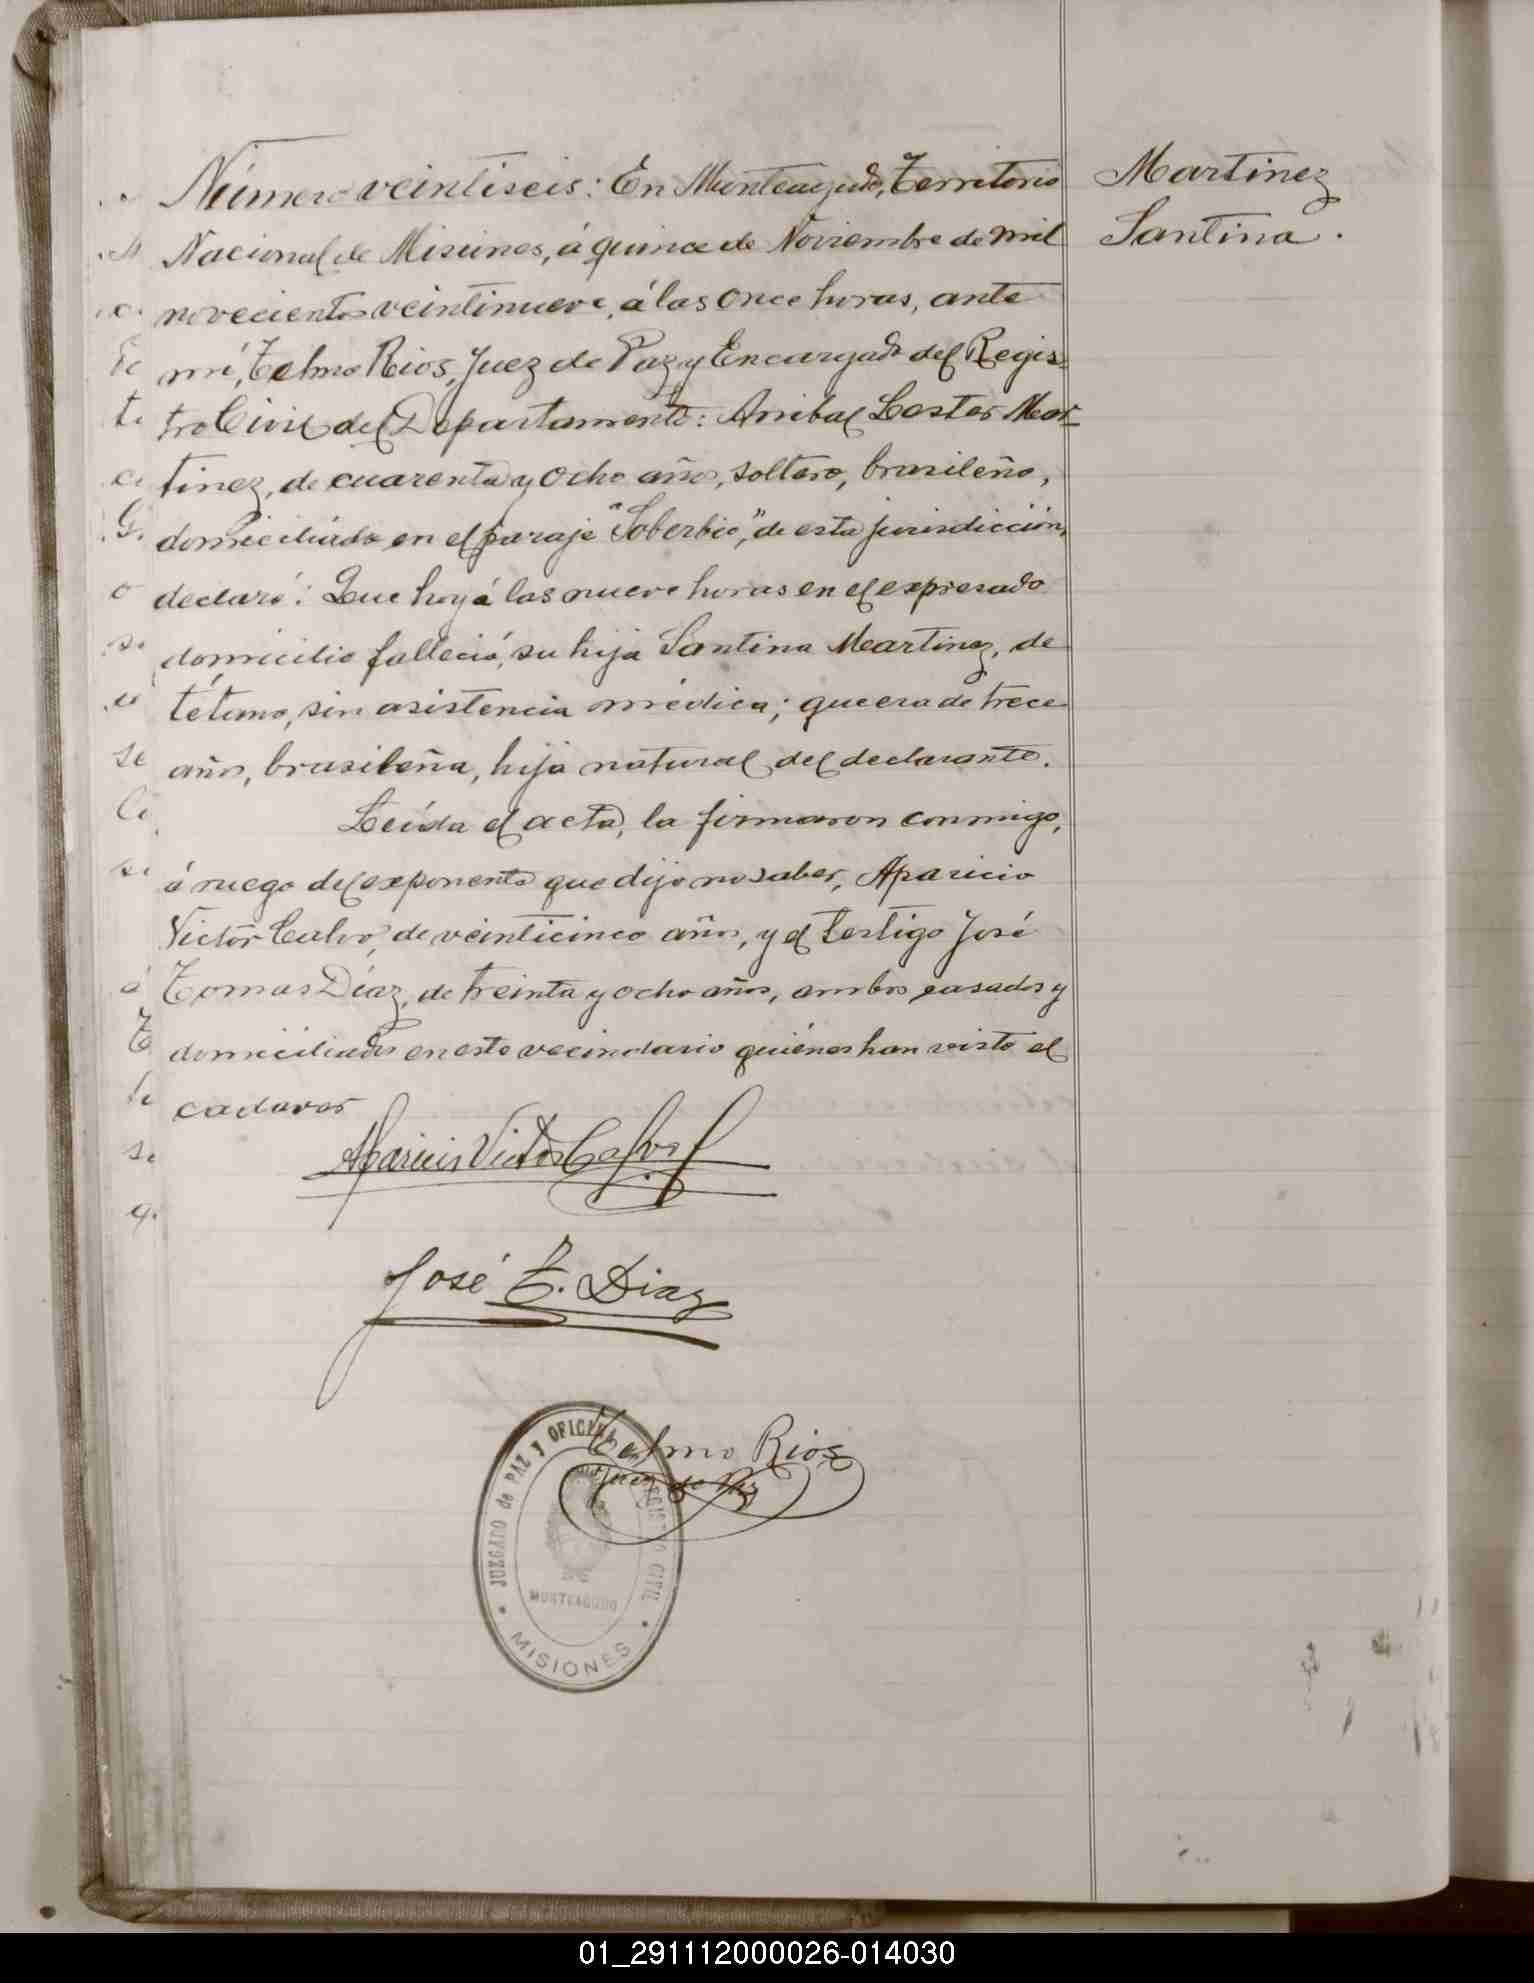 Número veintiseis: En Monteagudo, Territorio
Nacional de Misiones, á quince de Noviembre de mil
novecientos veintinueve, á las once horas, ante
mí, Telmo Rios, Juez de Paz y Encargado del Regis-
tro Civil del Departamento: Anibal Lester Mar-
tinez, de cuarenta y ocho años, soltero, brasileño,
domiciliado en el paraje "Soberbio," de esta jurisdicción,
declaró: Que hoy á las nueve horas en el expresado
domicilio falleció, su hija Santina Martinez, de
tétano, sin asistencia médica; que era de trece
años, brasileña, hija natural del declarante.
Leída el acta, la firmaron conmigo,
á ruego del exponente que dijo no saber, Aparicio
Victor Calvo, de veinticinco años, y el testigo José
Tomas Díaz, de treinta y ocho años, ambos casados y
domiciliados en este vecindario quiénes han visto el
cadaver
Martinez
Santina.
Aparicio Victor Calvo
José T. Diaz
Telmo Rios
Juez de Paz
JUZGADO de PAZ y OFICINA REGISTRO CIVIL
MONTEAGUDO
MISIONES
01_291112000026-014030